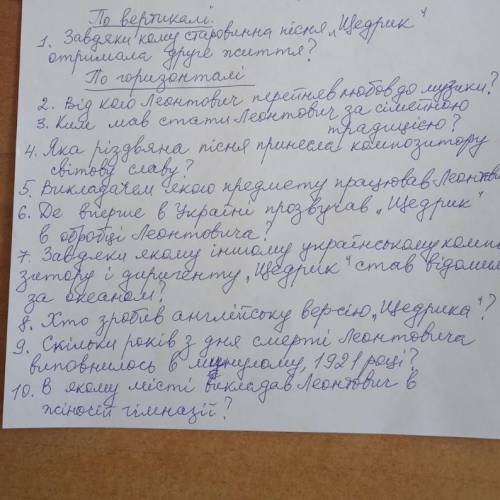 По вертикалі.
1. Завдяки кому старовинна пісня „Щедрик“
отримала друге життя?
По горизонталі
2. Від кого Леонтович перейняв любов до музики?
3. Ким мав стати Леонтович за сімейною
традицією?
4. Яка різдвяна пісня принесла композитору
світову славу?
5. Викладачем якого предмету працював Леонтов
6. Де вперше в Україні прозвучав „Щедрик“
в обробці Леонтовича?
7. Завдяки якому іншому українському компо
зитору і диригенту „Щедрик“ став відомим
за океаном?
8. Хто зробив англійську версію „Щедрика“?
9. Скільки років з дня смерті Леонтовича
виповнилось в минулому, 1921 році?
10. В якому місті викладав Леонтович в
жіночій гімназії?